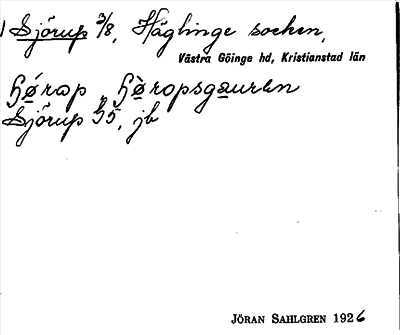 Sjörup 3/8, Häglinge socken,
Västra Göinge hd, Kristianstad län
Sjörup 35, jb
JÖRAN SAHLGREN 1926